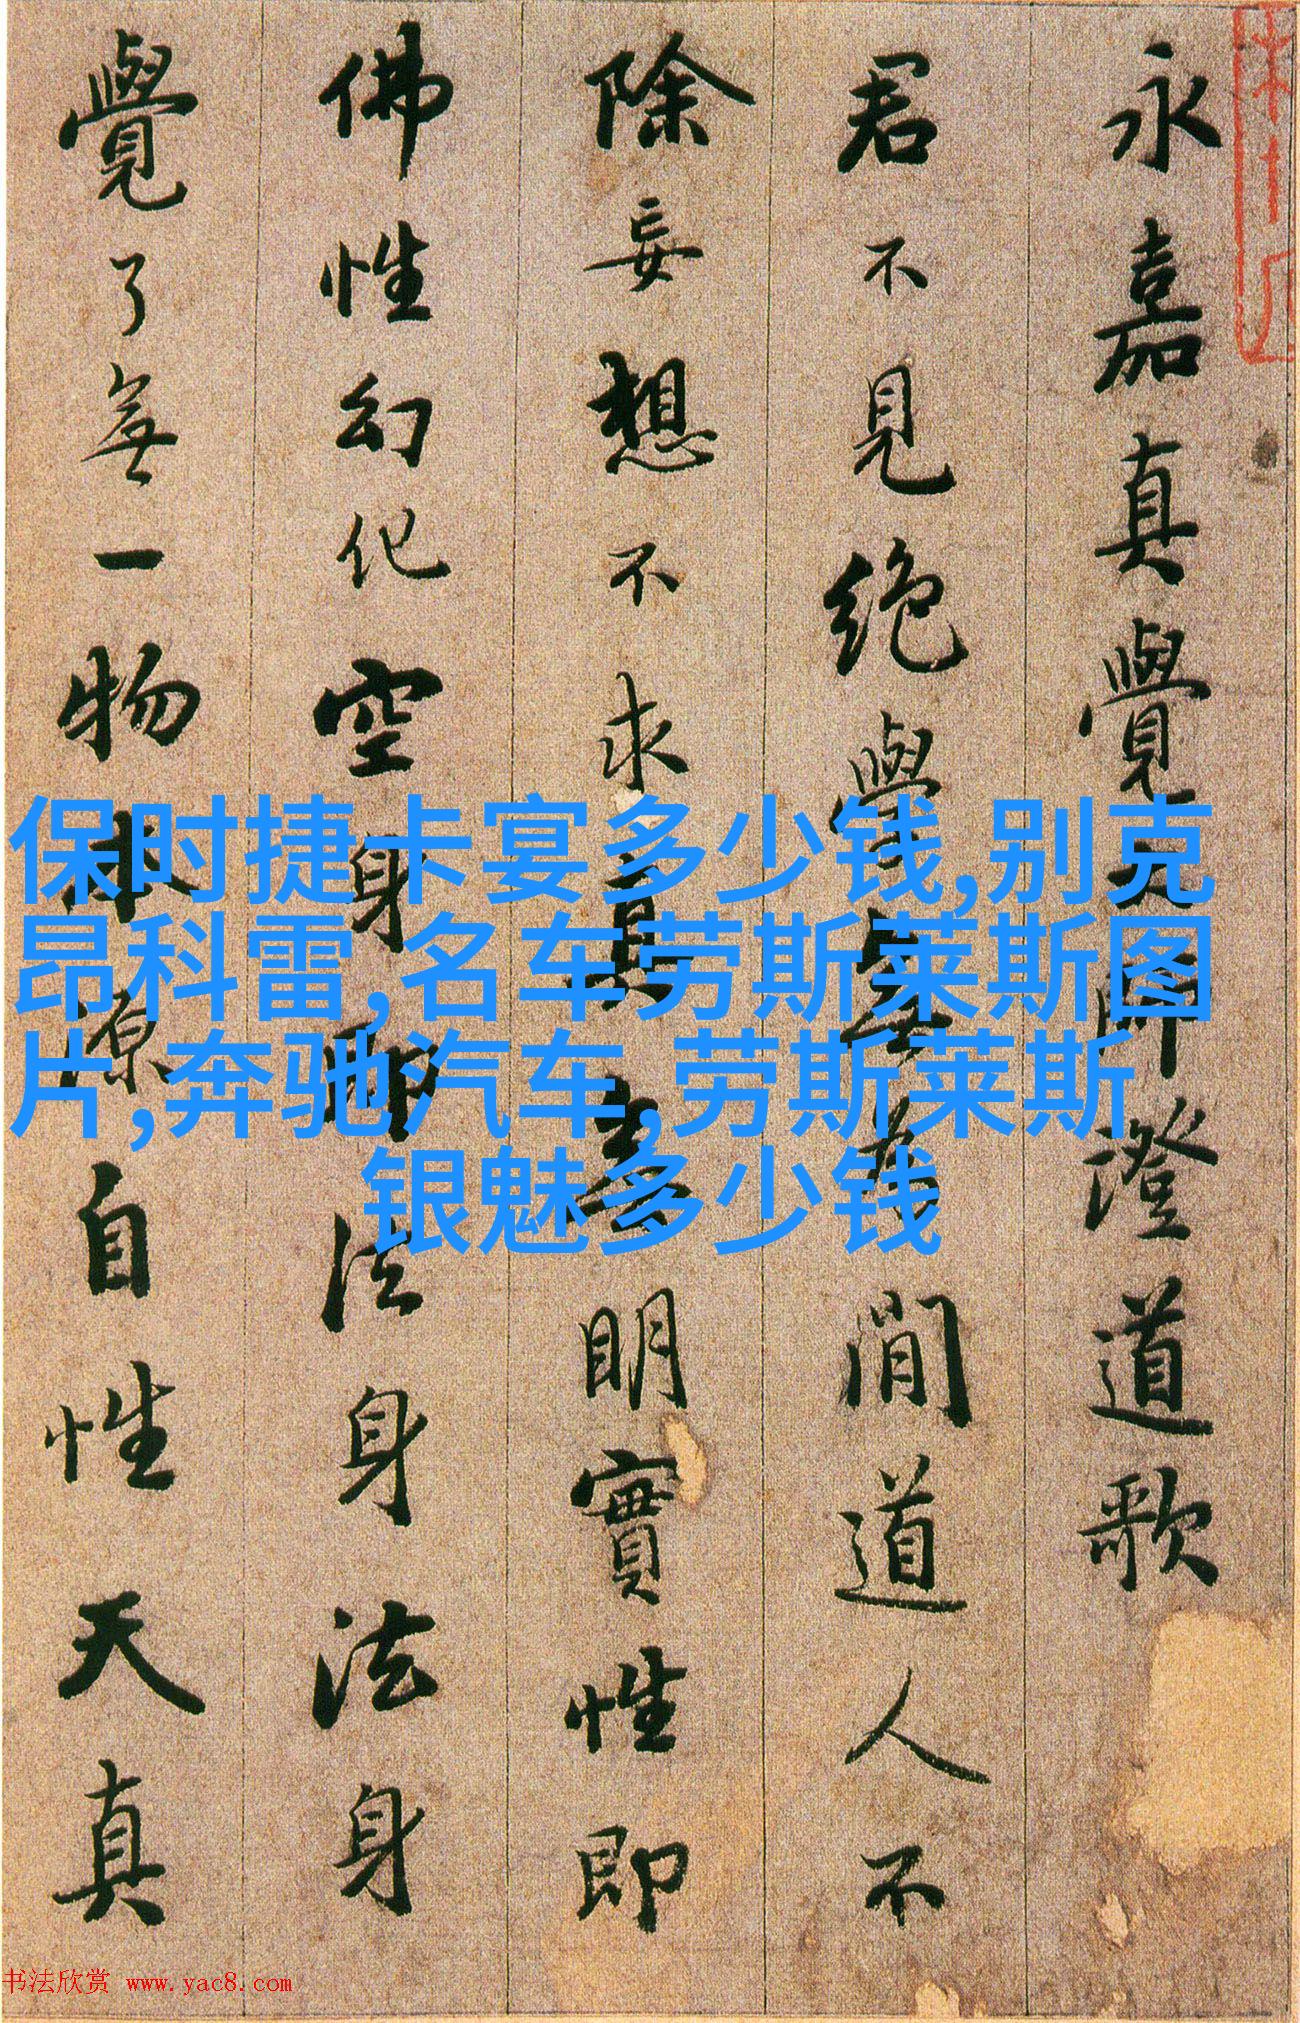 永嘉真覺大師澄道歌
君不見絕學無為閒道人不
除妄想不求真無明實性即
佛性幻化空身即法身法身
覺了無一物本源自性天真
保时捷卡宴多少钱,别克
昂科雷,名车劳斯莱斯图
片,奔驰汽车,劳斯莱斯
银魅多少钱
书法欣赏 www.yac8.com